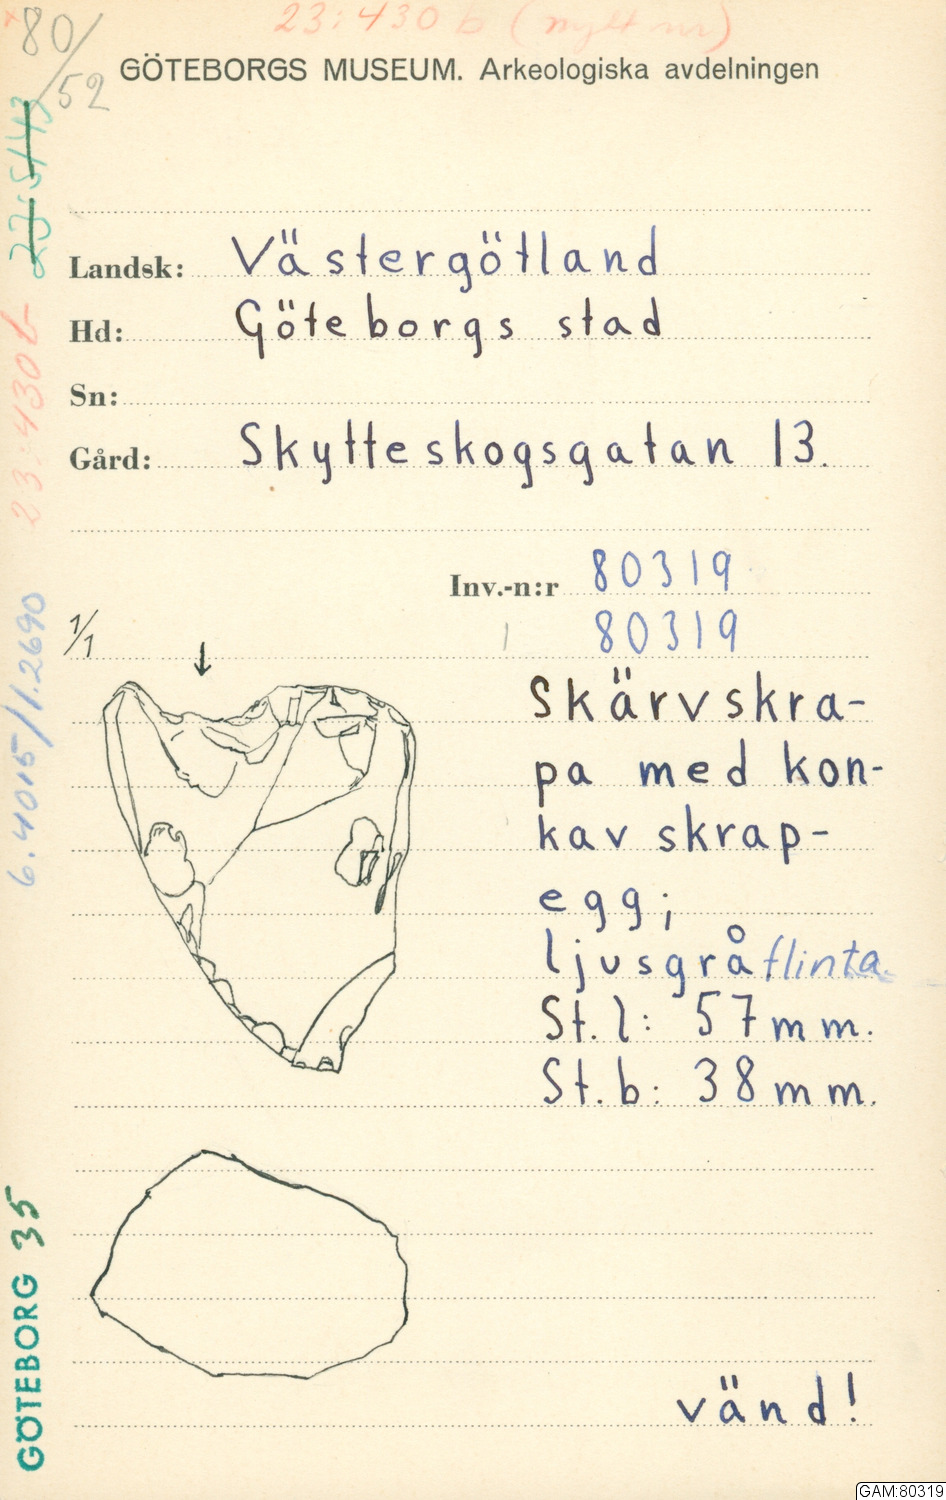 23:430 b (nytt nr)
80/52
GÖTEBORGS MUSEUM. Arkeologiska avdelningen
Landsk: Västergötland
Hd: Göteborgs stad
Sn:
Gård: Skytteskogsgatan 13.
Inv.-n:r 80319
80319
1/1
Skärvskra-
pa med kon-
kav skrap-
egg;
ljusgrå flinta.
St. l: 57 mm.
St. b: 38 mm.
vänd!
23:430b
6.4015/1.2690
GÖTEBORG 35
GAM:80319